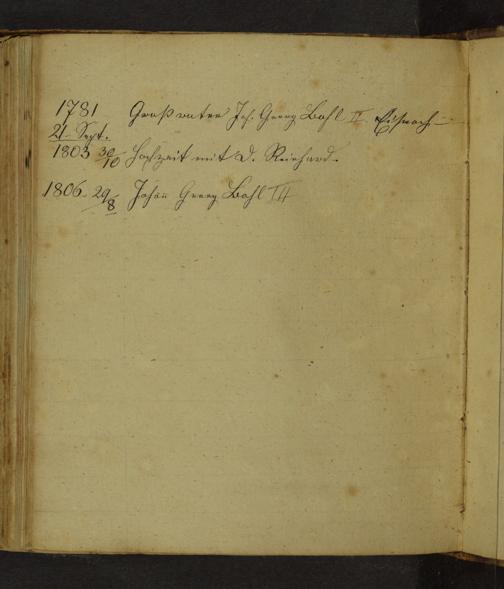 1781 Großvater Joh. Georg Bohl II
21. Sept.
1803 30/10 Hochzeit mit D. Reinhard.
1806 29/8 Johann Georg Bohl III